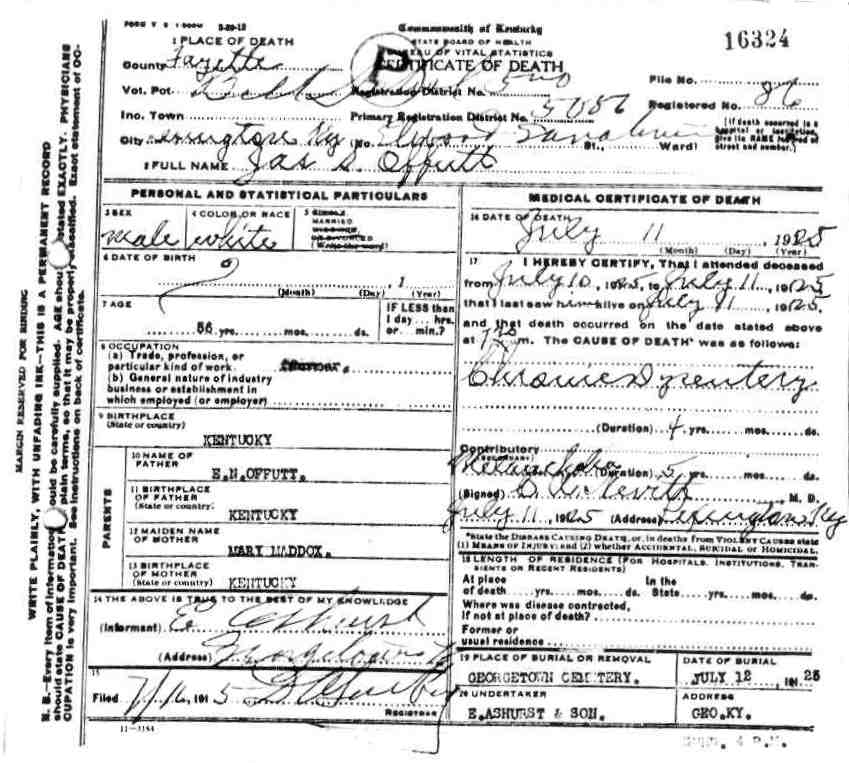 FORM V S 1
Commonwealth of Kentucky
STATE BOARD OF HEALTH
BUREAU OF VITAL STATISTICS
CERTIFICATE OF DEATH
16324
1 PLACE OF DEATH
County Fayette
Vot. Pct
Registration District No.
File No.
Inc. Town
Primary Registration District No.
Registered No. 86
City Lexington Ky (No. St., Ward)
[If death occurred in a hospital or institution, give its NAME instead of street and number.]
2 FULL NAME Jas S. Offutt
PERSONAL AND STATISTICAL PARTICULARS
3 SEX
male
4 COLOR OR RACE
white
5 SINGLE
MARRIED
WIDOWED
OR DIVORCED
(Write the word)
6 DATE OF BIRTH
, 1
(Month) (Day) (Year)
7 AGE
56 yrs. mos. ds.
IF LESS than
1 day... hrs.
or... min.?
8 OCCUPATION
(a) Trade, profession, or
particular kind of work Farmer.
(b) General nature of industry
business or establishment in
which employed (or employer)
9 BIRTHPLACE
(State or country)
KENTUCKY
PARENTS
10 NAME OF
FATHER
E.N.OFFUTT.
11 BIRTHPLACE
OF FATHER
(State or country)
KENTUCKY
12 MAIDEN NAME
OF MOTHER
MARY MADDOX.
13 BIRTHPLACE
OF MOTHER
(State or country)
KENTUCKY
14 THE ABOVE IS TRUE TO THE BEST OF MY KNOWLEDGE
(Informant) E Ashurst
(Address) Georgetown Ky
15
Filed 7/16, 191 5
REGISTRAR
11-3184
MEDICAL CERTIFICATE OF DEATH
16 DATE OF DEATH
July 11, 1925
(Month) (Day) (Year)
17 I HEREBY CERTIFY, That I attended deceased
from July 10, 1925, to July 11, 1925
that I last saw him alive on July 11, 1925,
and that death occurred on the date stated above
at m. The CAUSE OF DEATH* was as follows:
Chronic Dysentery
(Duration) 4 yrs. mos. ds.
Contributory
(SECONDARY)
Melancholia (Duration) 5 yrs. mos. ds.
(Signed) , M. D.
July 11, 1925 (Address) Lexington Ky
*State the DISEASE CAUSING DEATH, or, in deaths from VIOLENT CAUSES state
(1) MEANS OF INJURY; and (2) whether ACCIDENTAL, SUICIDAL or HOMICIDAL.
18 LENGTH OF RESIDENCE (FOR HOSPITALS, INSTITUTIONS, TRANSIENTS OR RECENT RESIDENTS)
At place In the
of death yrs. mos. ds. State yrs. mos. ds.
Where was disease contracted,
if not at place of death?
Former or
usual residence
19 PLACE OF BURIAL OR REMOVAL
GEORGETOWN CEMETERY.
DATE OF BURIAL
JULY 12 , 191 25
20 UNDERTAKER
E.ASHURST & SON.
ADDRESS
GEO.KY.
MARGIN RESERVED FOR BINDING
WRITE PLAINLY, WITH UNFADING INK—THIS IS A PERMANENT RECORD
N. B.—Every item of information should be carefully supplied. AGE should be stated EXACTLY. PHYSICIANS
should state CAUSE OF DEATH in plain terms, so that it may be properly classified. Exact statement of OC-
CUPATION is very important. See instructions on back of certificate.